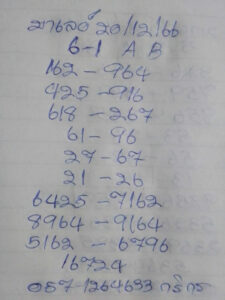 มาเลย์ 20/12/66
6-1 A B
162 - 964
425 - 916
618 - 267
61 - 96
27 - 67
21 - 26
6425 - 7162
8964 - 9164
5162 - 6796
16724
057-1264633